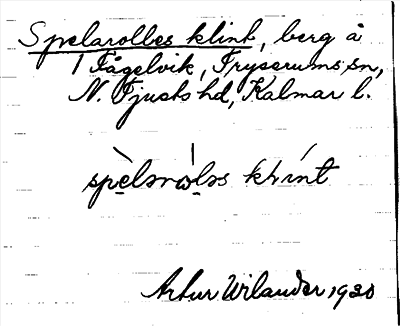 Spelarolles klint, berg å
Fågelvik, Tryserums sn,
N. Tjusts hd, Kalmar l.
Artur Wilander 1930